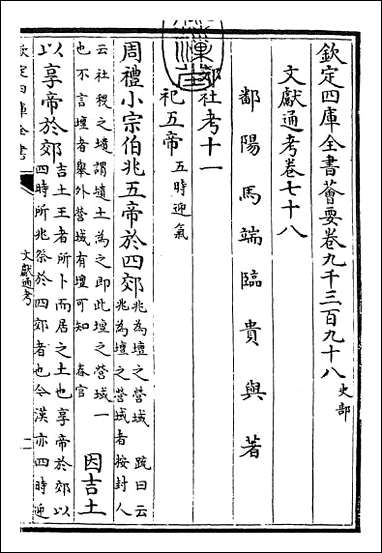 欽定四庫全書薈要卷九千三百九十八 史部
文獻通考卷七十八
鄱陽馬端臨貴與著
社考十一
祀五帝 五時迎氣
周禮小宗伯兆五帝於四郊 兆為壇之營域 疏曰云
兆為壇之營域者按封人
云社稷之壝謂壝土為之即此壇之營域一
也不言壇者舉外營域有壇可知 春官 因吉土
以享帝於郊 吉土王者所卜而居之土也享帝於郊以
四時所兆祭於四郊者也今漢亦四時迎
欽定四庫全書
文獻通考